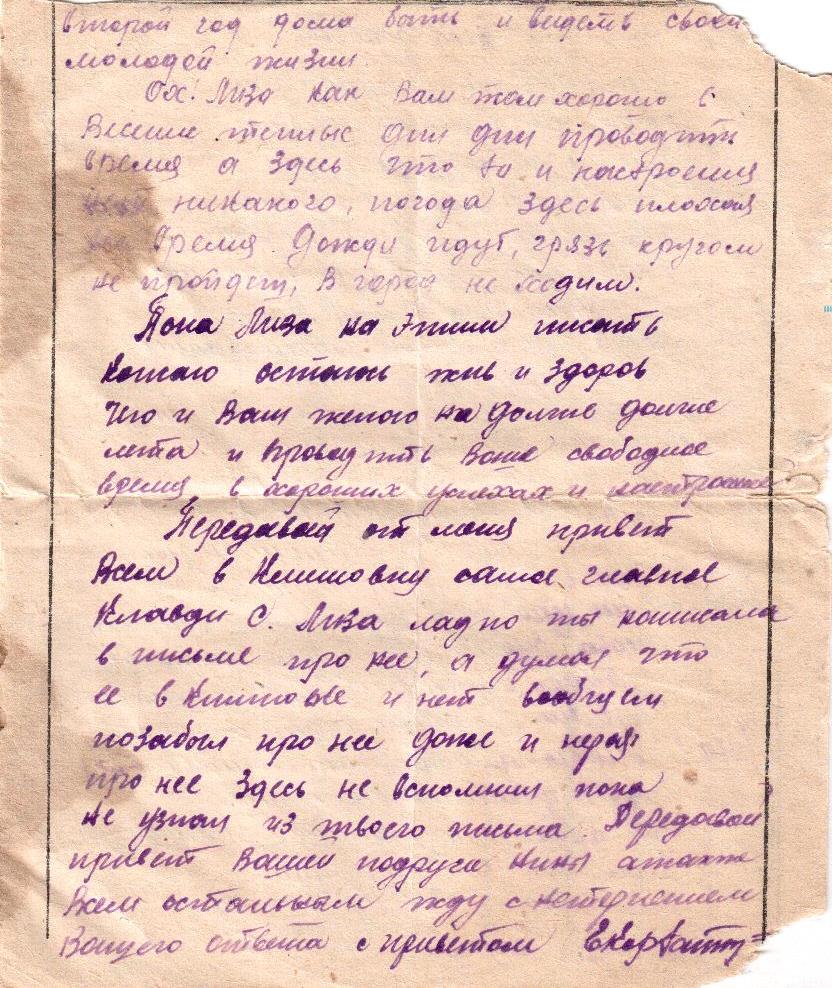 второй год дома быть и видеть своей
молодой жизни.
Ох! Лиза как Вам там хорошо в
Весение теплые дни дни проводить
время а здесь что то и настроения
никакого, погода здесь плохая
время дожди идут, грязь кругом
не пройдеш, в город не ходим.
Пока Лиза на этим писать
кончаю остаюсь жив и здоров
Чего и Вам желаю на долгие долгие
лета и проводить Ваше свободное
время в хороших успехах и настроение
Передавай от меня привет
Всем в самое главное
Клавди С. Лиза ладно ты написала
в письме про нее, а думал что
ее в и нет вообщем
позабыл про нее даже и
про нее здесь не вспомнил пока
не узнал из твоего письма. Передавай
привет Вашей подруги Нины атакже
Всем остальным жду с нетерпением
Вашего ответа с приветом